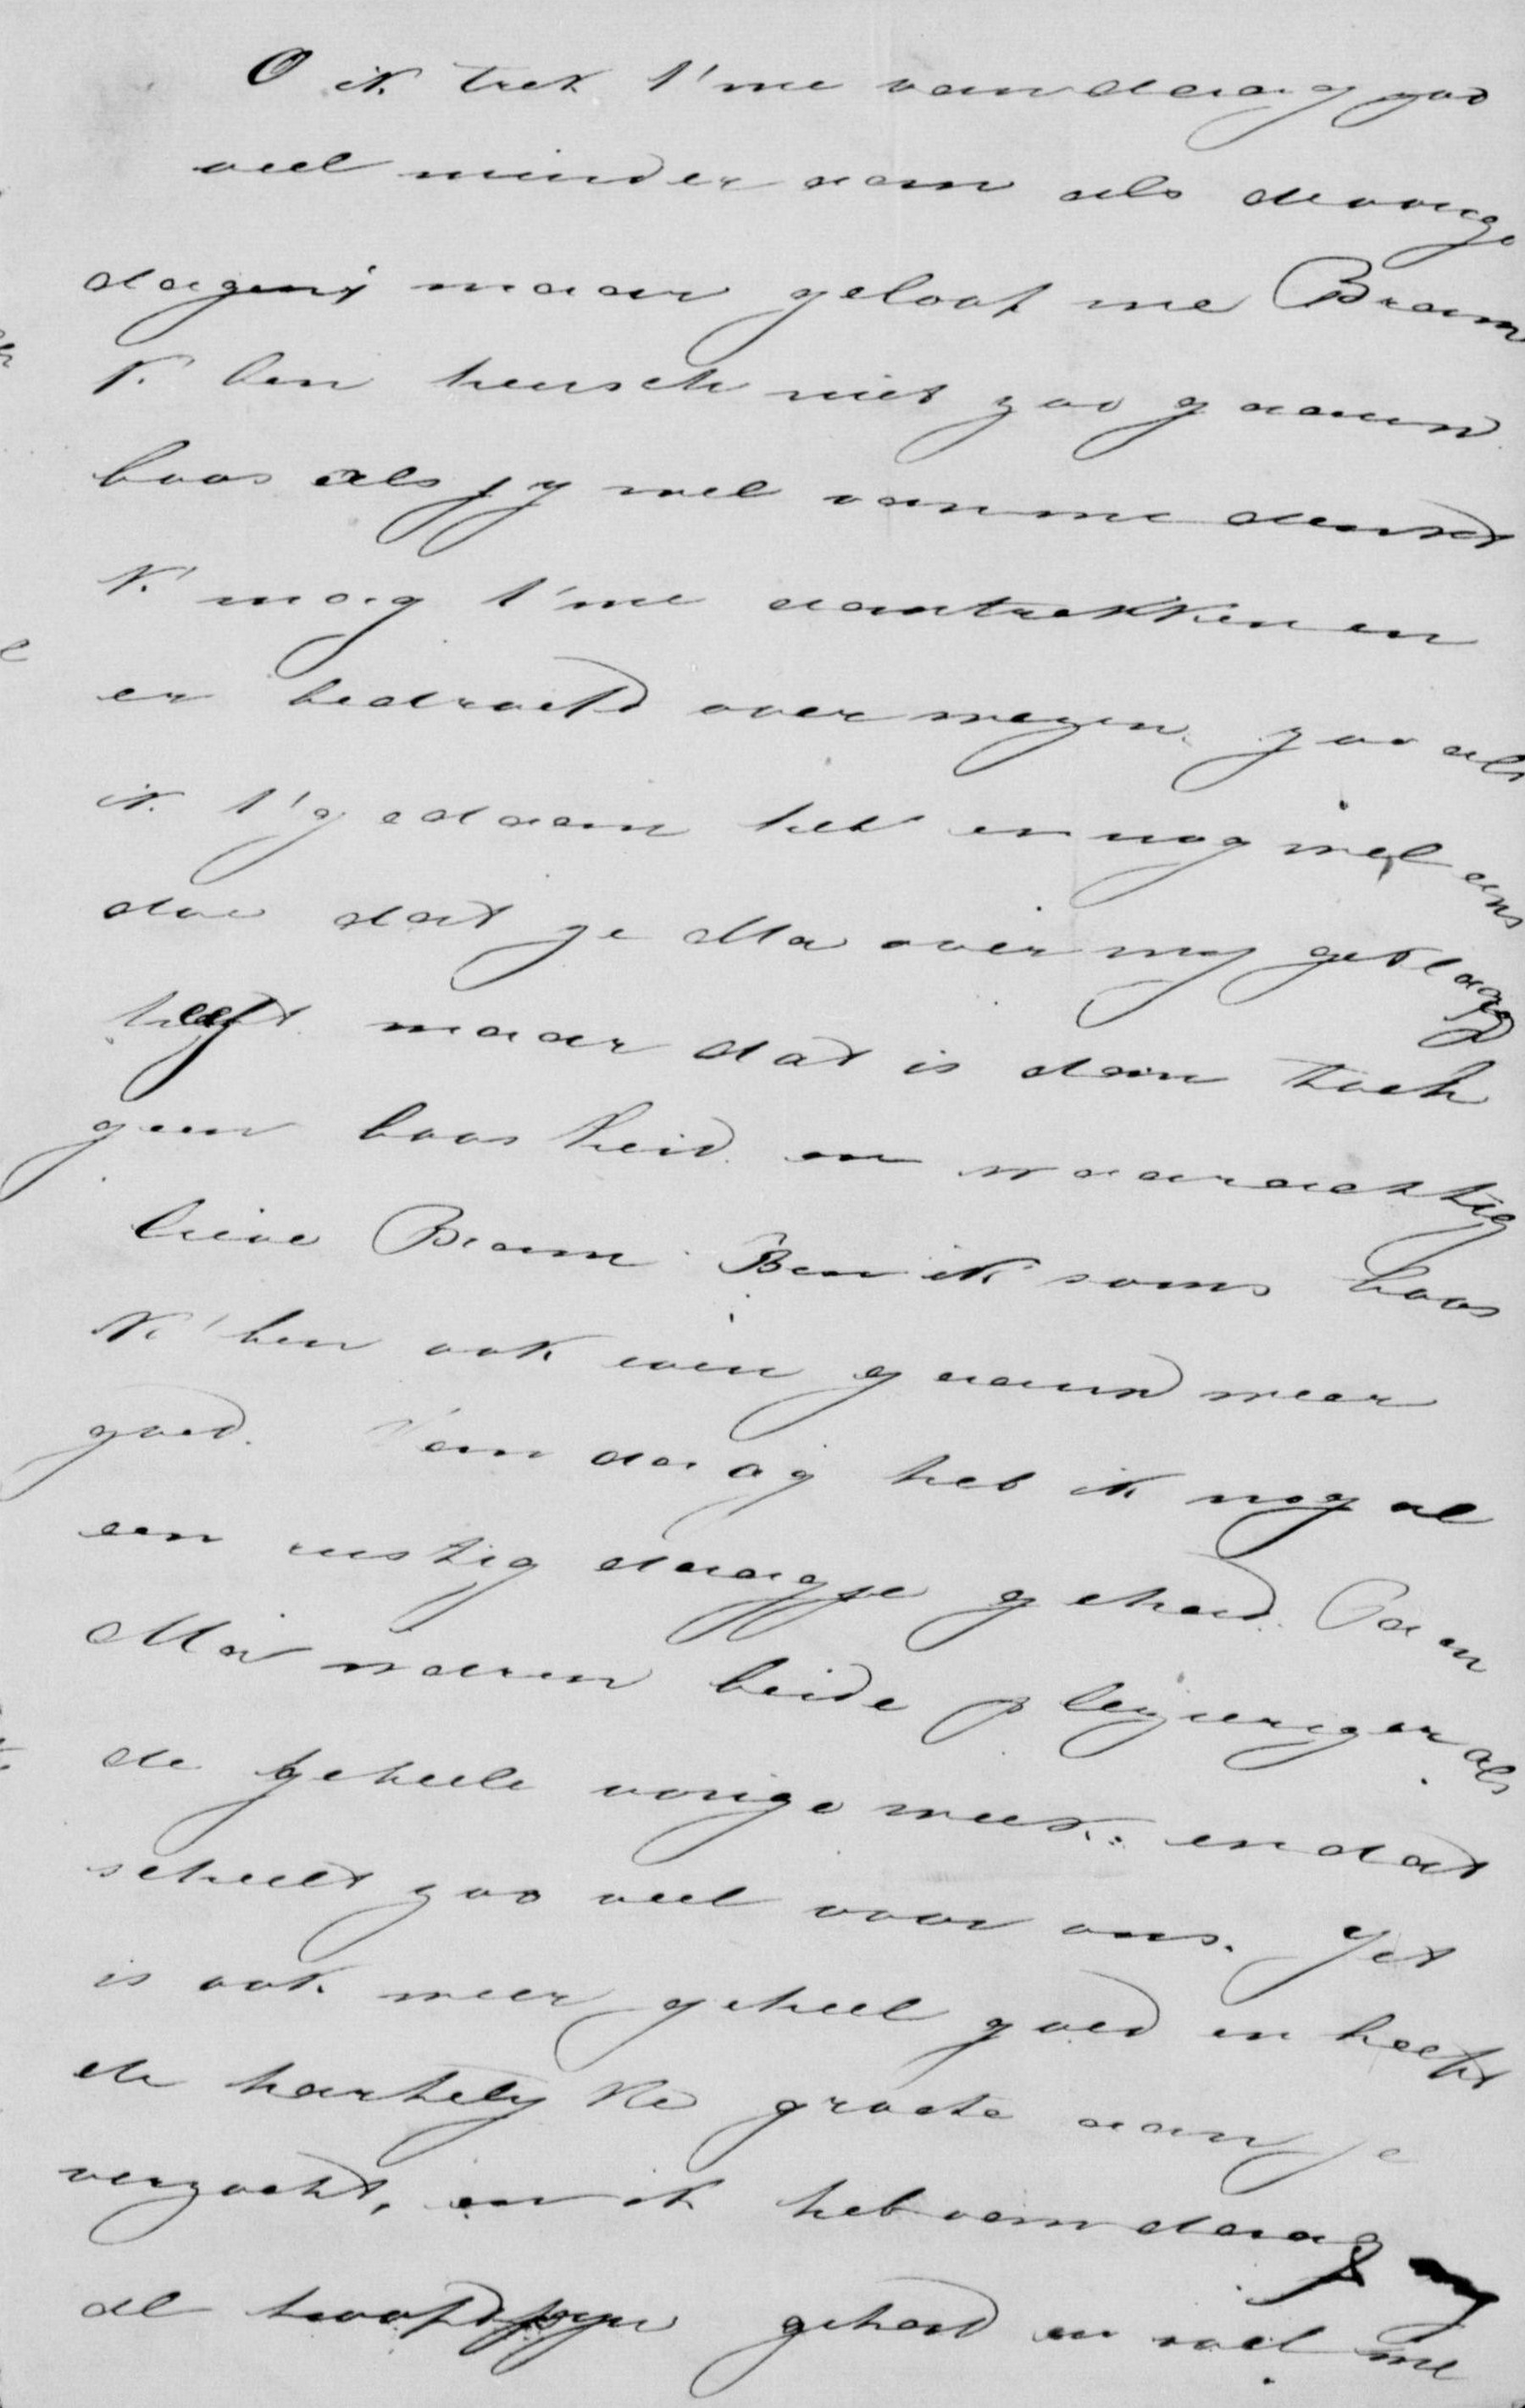 O ik trek t'me vandaag zoo
veel minder aan als de vorige
dagen; maar geloof me Bram
K' ben heusch niet zoo gaauw
boos als jy wel van me denkt
K' mag t'me aantrekken en
er bedroefd over wezen. zoo als
ik t' gedaan heb en nog wel eens
doe dat je Ma over my geklaagd
heeft maar dat is dan toch
geen boosheid. en waarachtig
lieve Bram. Ben ik soms boos
K' ben ook even gaauw weer
goed. Van daag heb ik nog al
een rustig daagje gehad. Pa en
Ma waren beide pleizieriger als
de geheele vorige week. en dat
scheelt zoo veel voor ons. Jet
is ook weer geheel goed en heeft
de hartelyke groete aan je
verzocht, en ik heb vandaag nog
al hoofdpyn gehad en voel me